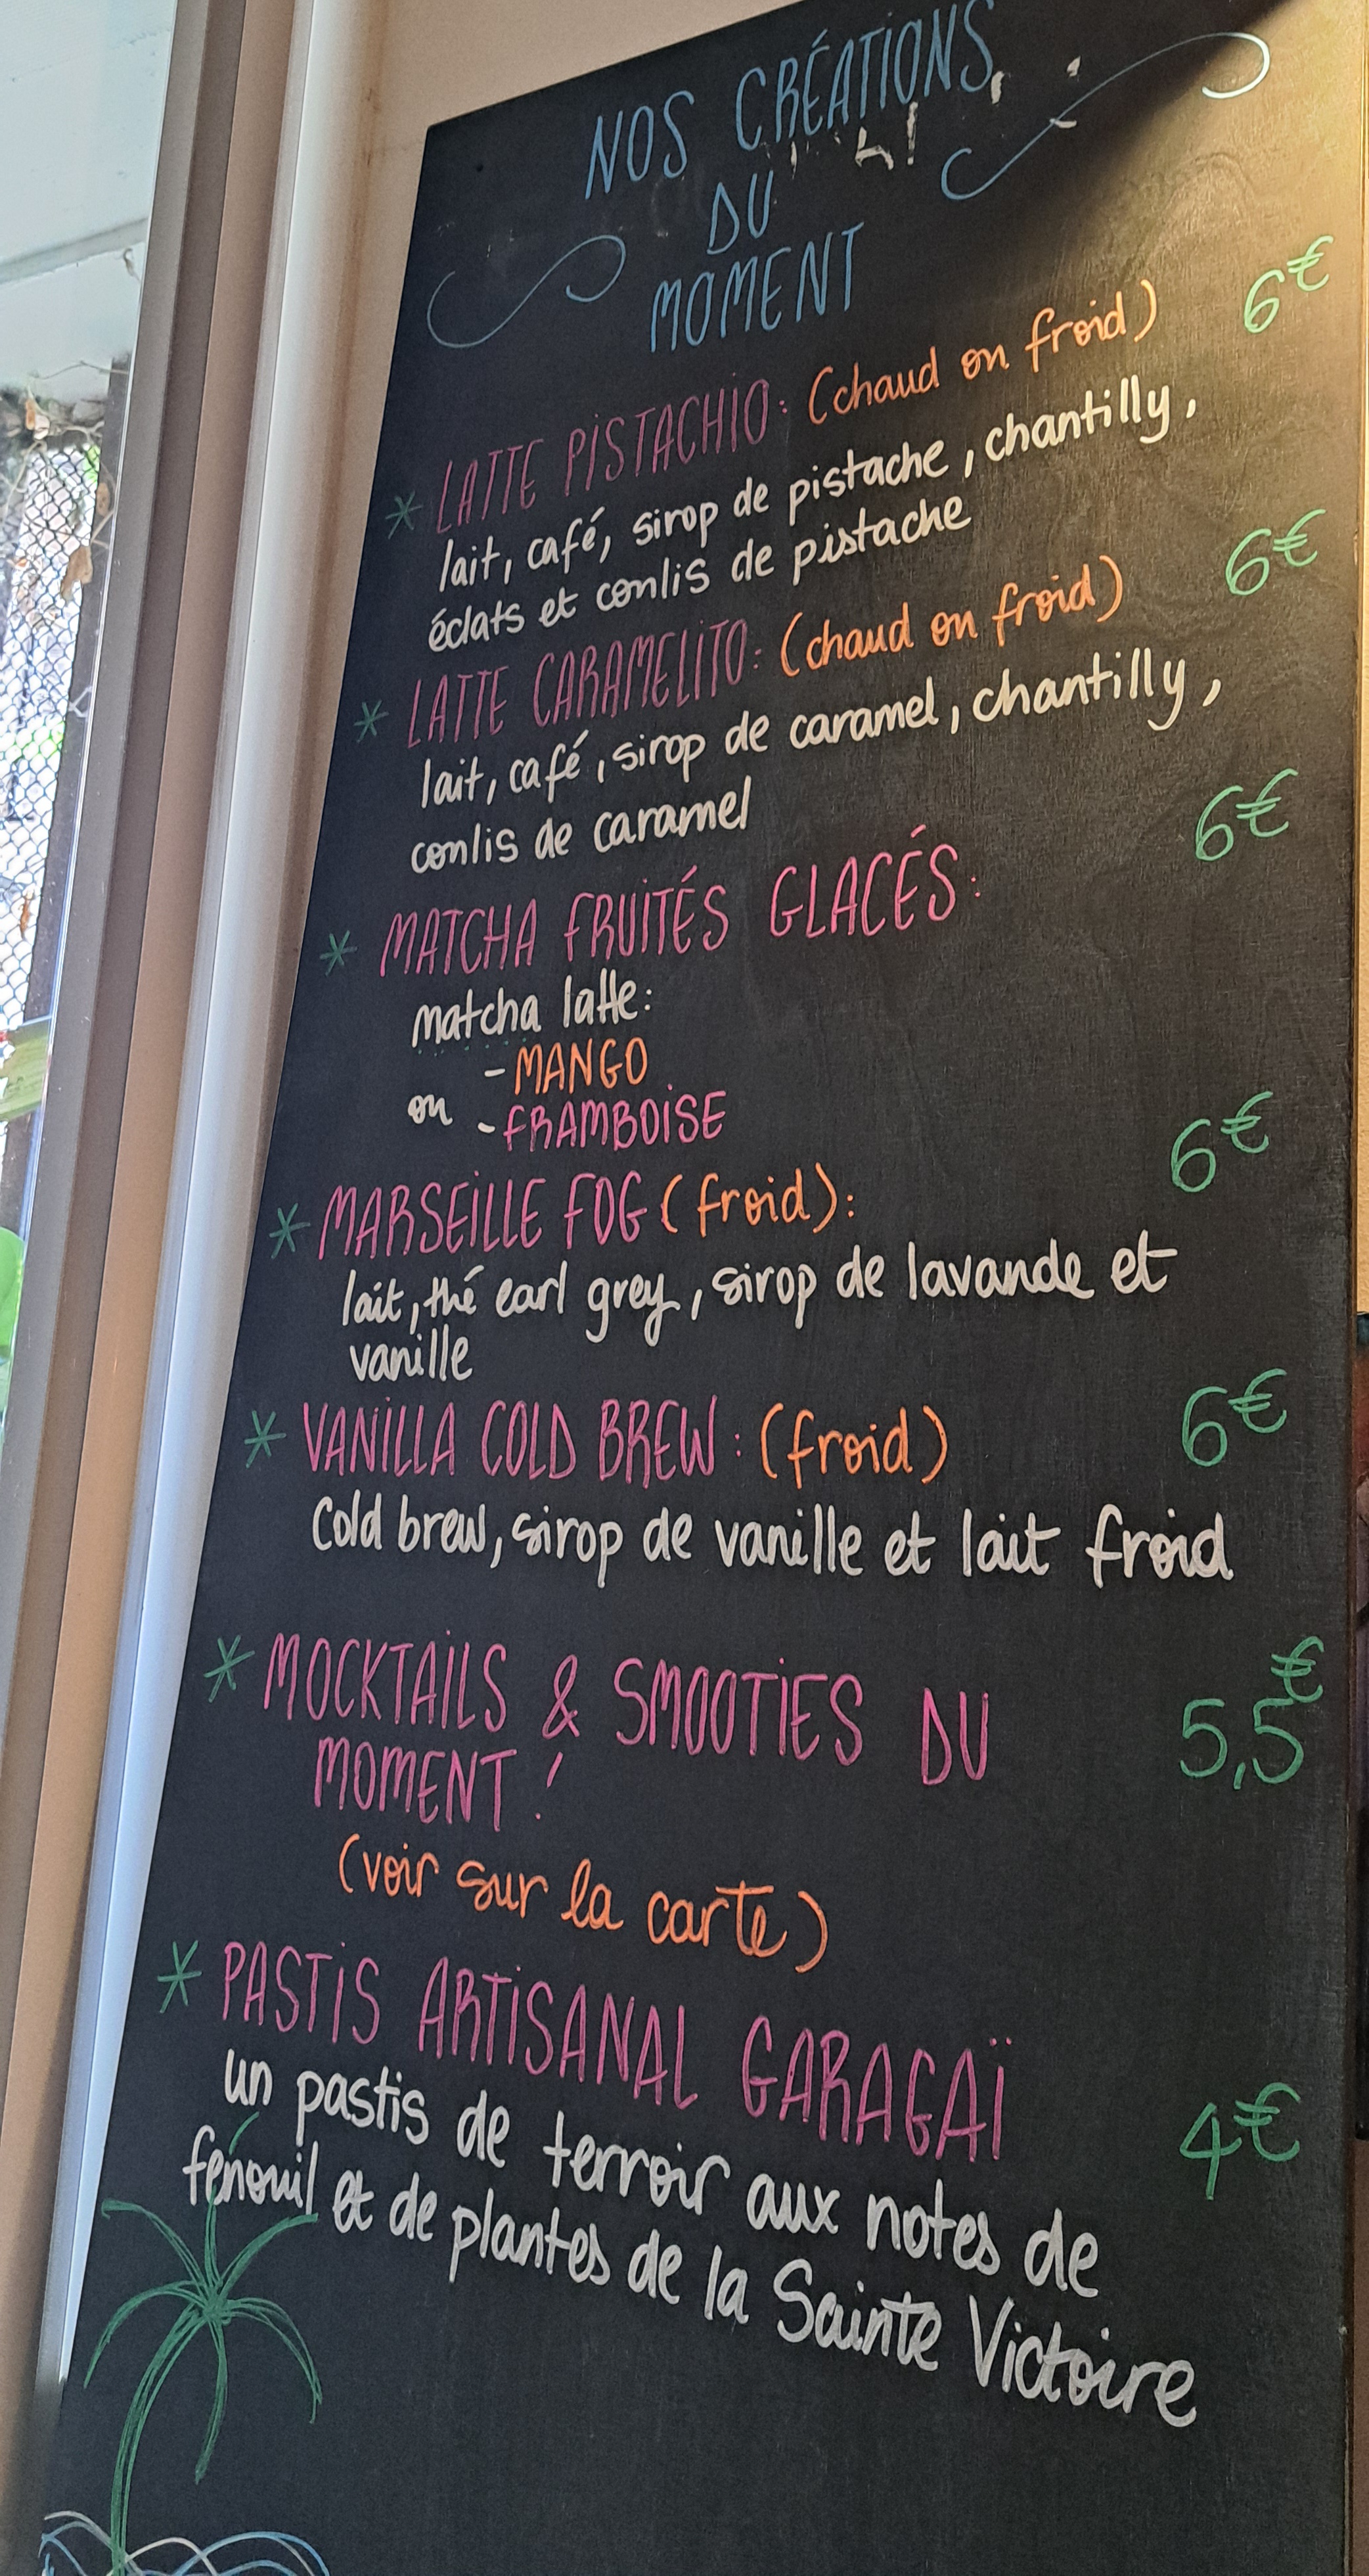 NOS CRÉATIONS
DU
MOMENT
* LATTE PISTACHIO: (chaud ou froid) 6€
lait, café, sirop de pistache, chantilly,
éclats et coulis de pistache
* LATTE CARAMELITO: (chaud ou froid) 6€
lait, café, sirop de caramel, chantilly,
coulis de caramel
* MATCHA FRUITÉS GLACÉS: 6€
matcha latte:
- MANGO
ou - FRAMBOISE
* MARSEILLE FOG (froid): 6€
lait, thé earl grey, sirop de lavande et
vanille
* VANILLA COLD BREW: (froid) 6€
Cold brew, sirop de vanille et lait froid
* MOCKTAILS & SMOOTIES DU 5,5€
MOMENT!
(voir sur la carte)
* PASTIS ARTISANAL GARAGAÏ 4€
un pastis de terroir aux notes de
fenouil et de plantes de la Sainte Victoire